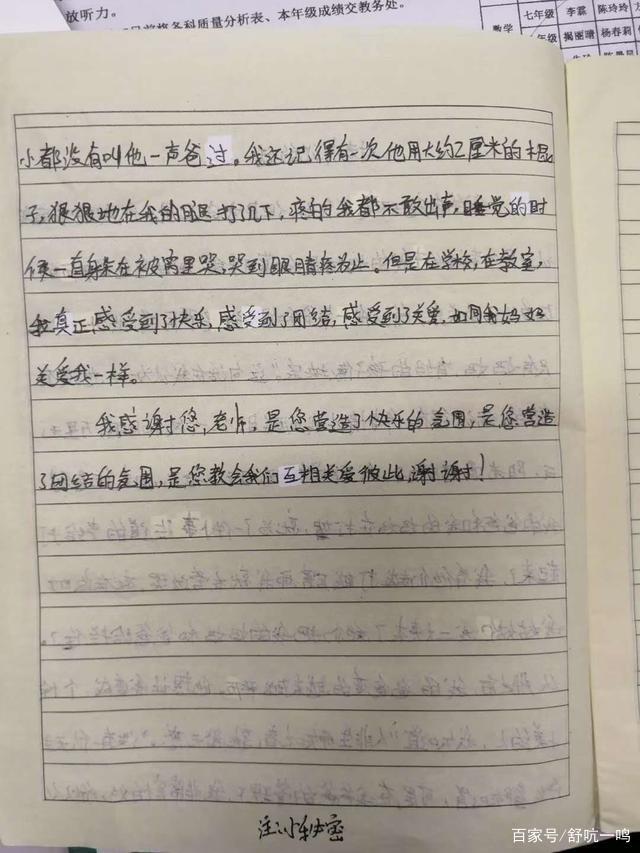 放听力。
各科质量分析表、本年级成绩交教务处。
数学
七年级
李霖
陈玲玲
年级
杨春莉
小都没有叫他一声爸过。我还记得有一次他用大约2厘米的棍
子,狠狠地在我的腿打了几下,疼的我都不敢出声,睡觉的时
候一直躲在被窝里哭,哭到眼睛疼为止。但是在学校,在教室,
我真正感受到了快乐,感受到了团结,感受到了关爱,如同我妈妈
关爱我一样。
我感谢您,老师,是您营造了快乐的氛围,是您营造
了团结的氛围,是您教会我们互相关爱彼此,谢谢!
注:小秘密
百家号/舒吭一鸣